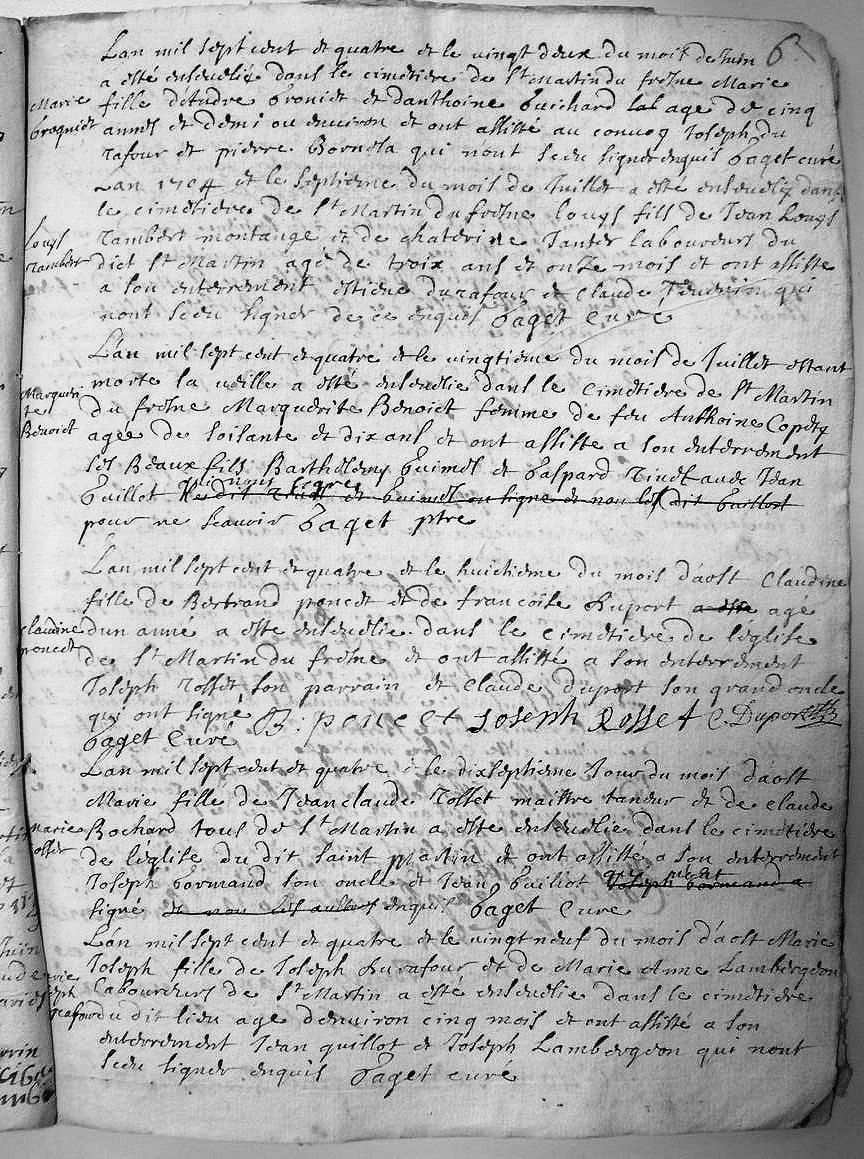 Lan mil sept cent et quatre et le vingt deux du mois de Juin 6
a esté enseuelie dans le cimetiere de St Martin du fresne Marie
Marie
fille d'andre et danthoine Guichard age de cinq
annes et demi ou enuiron et ont assisté au conuoy Joseph du
rafour et pierre qui n'ont sceu signer enquis Gaget curé
Lan 1704 et le septieme du mois de Juillet a esté enseuely dans
le cimetiere de St Martin du fresne louys fils de Jean Louys
louys
Tambert
Tambert montange et de chaterine laboureurs du
dict St Martin agé de troix ans et onze mois et ont assisté
a son enterrement estiene durafour et Claude qui
nont sceu signer de ce enquis Gaget Curé
L'an mil sept cent et quatre et le vingtieme du mois de Juillet estant
morte la veille a esté enseuelie dans le cimetiere de St Martin
Margueri
te
Benoict
du fresne Marguerite Benoict femme de feu Anthoine
agée de soisante et dix ans et ont assisté a son enterrement
ses Beaux fils Barthelemy Guimet et Gaspard Jean
Guillot
pour ne scauoir Gaget ptre
L'an mil sept cent et quatre et le huictieme du mois d'aost Claudine
fille de Bertrand poncet et de francoise Duport a esté agé
claudine
poncet
dun anné a esté enseuelie dans le cimetiere de léglise
de St Martin du fresne et ont assisté a son enterrement
Joseph Rosset son parrain et Claude duport son grand oncle
qui ont signé B: poncet Joseph Rosset C. Duport
Gaget Curé
L'an mil sept cent et quatre et le dixseptieme Jour du mois d'aost
Marie fille de Jean claude Rosset maittre taneur et de claude
Marie
Rosset
Bochard tous de St Martin a esté enseuelie dans le cimetiere
de léglise du dit saint martin et ont assisté a son enterrement
Joseph Gormand son oncle et Jean Guillot Joseph Gormand a
signé et non les aultres enquis Gaget Curé
L'an mil sept cent et quatre et le vingt neuf du mois d'aost Marie
Joseph fille de Joseph Durafour et de Marie Anne Lambergeon
Laboureurs de St Martin a esté enseuelie dans le cimetiere
du dit lieu age denuiron cinq mois et ont assisté a son
enterrement Jean guillot et Joseph Lambergeon qui nont
sceu signer enquis Gaget curé